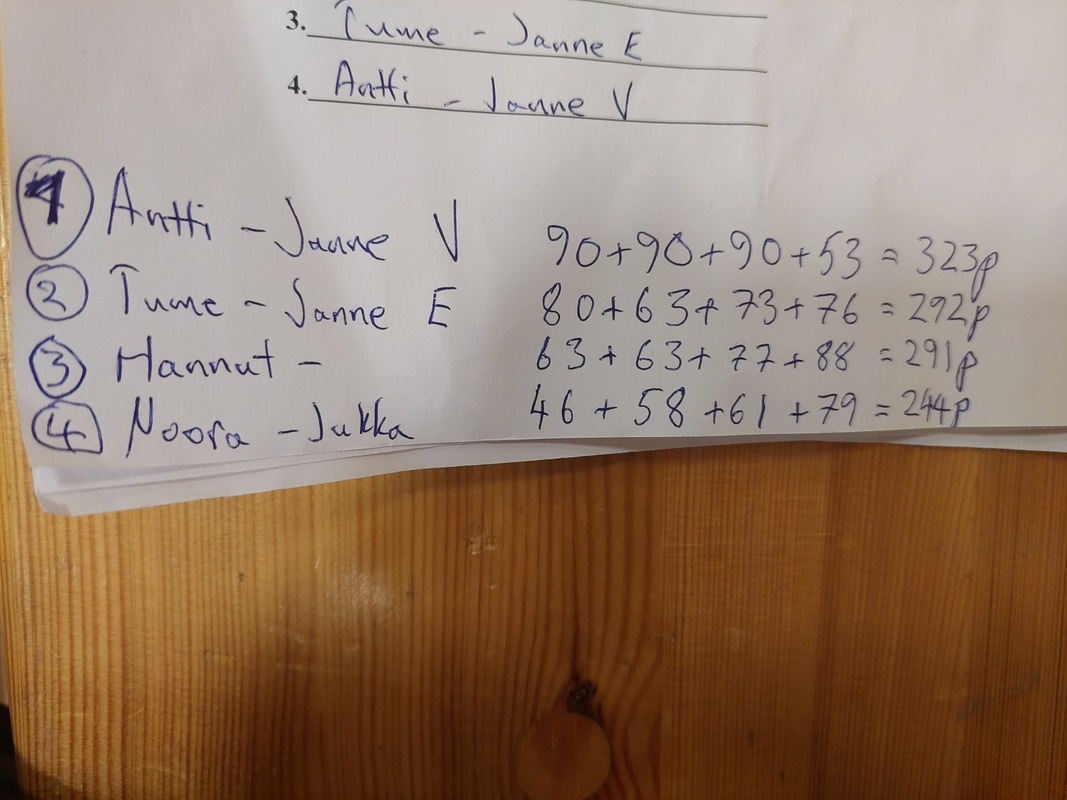 3. Tume - Janne E
4. Antti - Janne V
1 Antti - Janne V 90+90+90+53 = 323p
2 Tume - Janne E 80+63+73+76 = 292p
3 Hannut - 63+63+77+88 = 291p
4 Noora - Jukka 46+58+61+79 = 244p